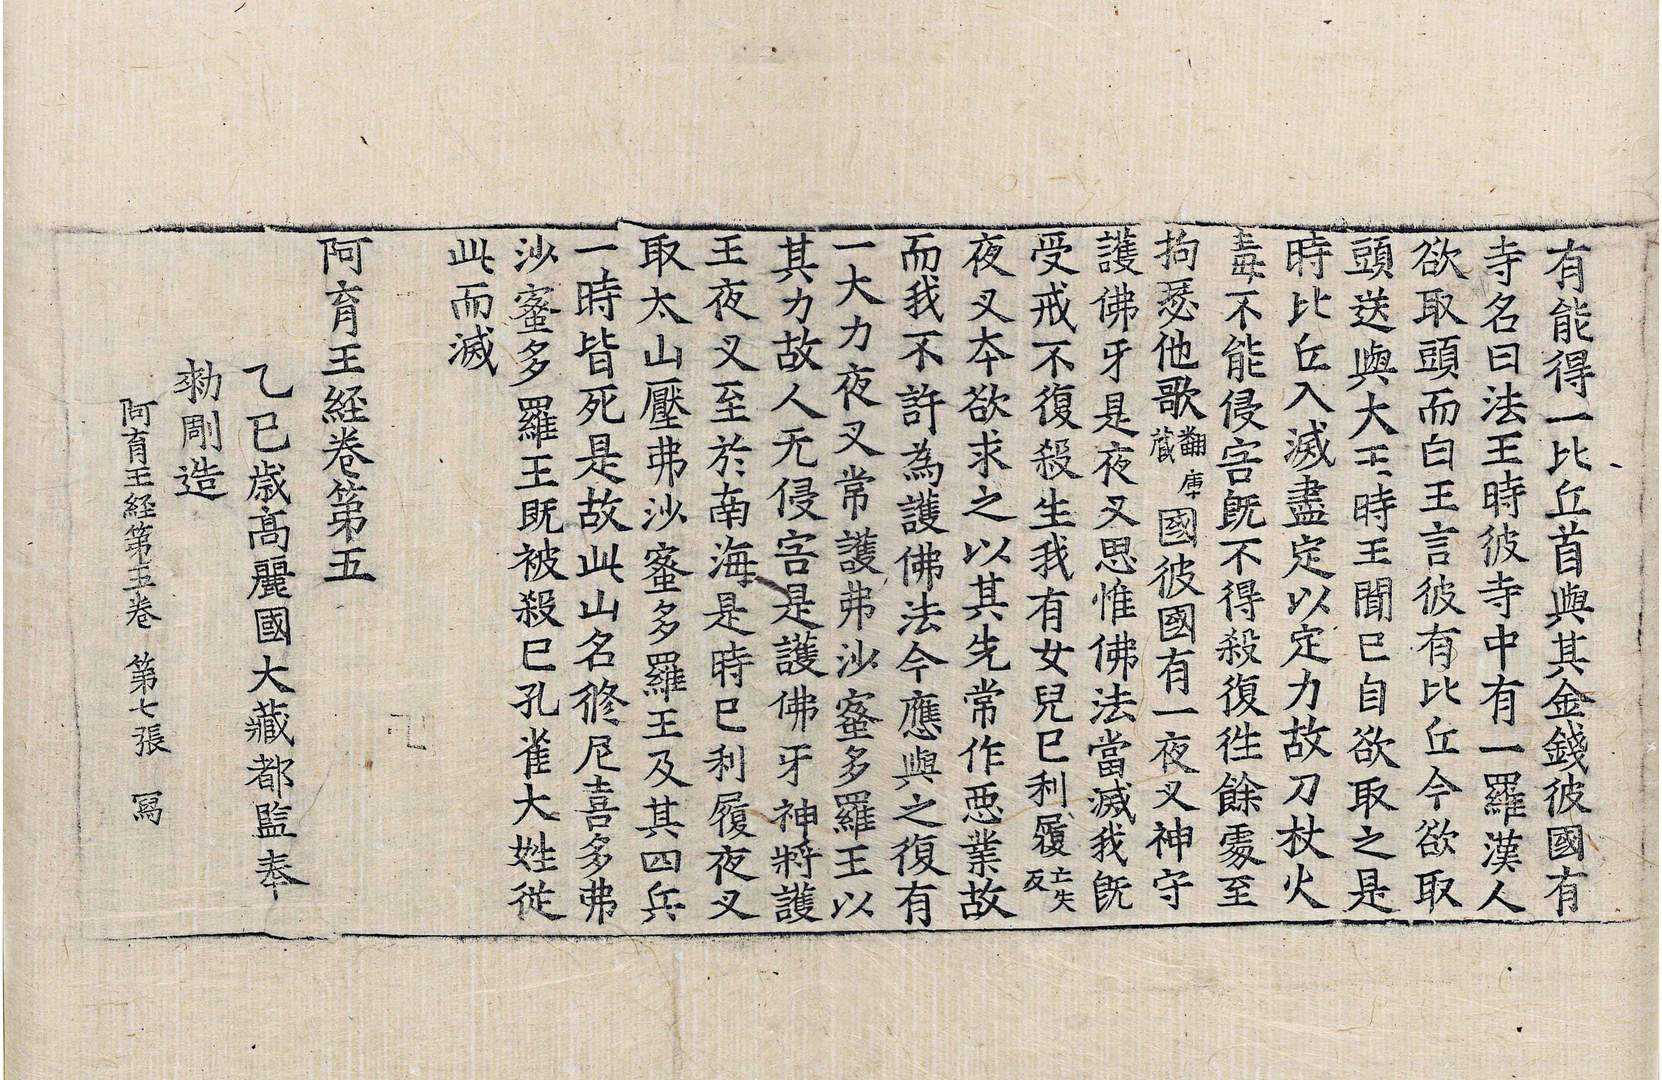 有能得一比丘首與其金錢彼國有
寺名曰法王時彼寺中有一羅漢人
欲取頭而白王言彼有比丘今欲取
頭送與大王王時王聞已自欲取之是
時比丘入滅盡定以定力故刀杖火
毒不能侵害旣不得殺復徃餘䖏至
拘瑟他歌翻庫藏國彼國有一夜叉神守
護佛牙是夜叉思惟佛法當滅我旣
受戒不復殺生我有女兒巳利履亡失反
夜叉夲欲求之以其先常作惡業故
而我不許為護佛法今應與之復有
一大力夜叉常護弗沙蜜多羅王以
其力故人无侵害是護佛牙神將護
王夜叉至於南海是時巳利履夜叉
取太山壓弗沙蜜多羅王及其四兵
一時皆死是故此山名修尼喜多弗
沙蜜多羅王旣被殺已孔雀大姓從
此而滅
阿育王經卷第五
乙巳歳高麗國大藏都監奉
勑彫造
阿育王經第五卷 第七張 冩